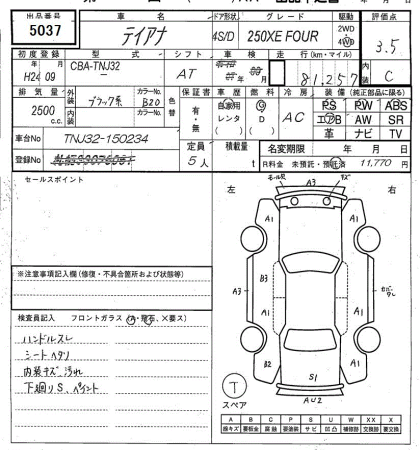 出品番号 車名 ドア形状 グレード 駆動 評価点
5037 テイアナ 4S/D 250XE FOUR 2WD 4WD 3.5
初度登録 型式 シフト 車検 走行(km・マイル) 内装 C
H24 年 09 月 CBA-TNJ32 AT 年 月 81,257
排気量 外装 色 カラーNo. 色替 保証書 車歴 燃料 冷房 装備(純正部品に限る)
2500 c.c. ブラック系 B20 有・無 自家用 レンタ ( ) G D ( ) AC PS PW ABS
内装 色 カラーNo. エアB AW SR
革 ナビ TV
車台No TNJ32-150234 定員 積載量 名変期限 年 月 日
登録No 5人 t R料金 未預託・預託済 11,770 円
セールスポイント
左 右
モール欠 A3 キズ
A1 A1
※注意事項記入欄(修復・不具合箇所および状態等)
A3 B3 A1 A1 A3
検査員記入 フロントガラス(A・飛石、X要ス)
ハンドルスレ
シートヘタリ
内装キズ汚れ
下廻りS、ペイント
B2 S1 A1
T スペア AU2
A B C P S U W X XX
線キズ 要板金 腐蝕 要塗装 サビ 凹凸 補修跡 交換跡 要交換